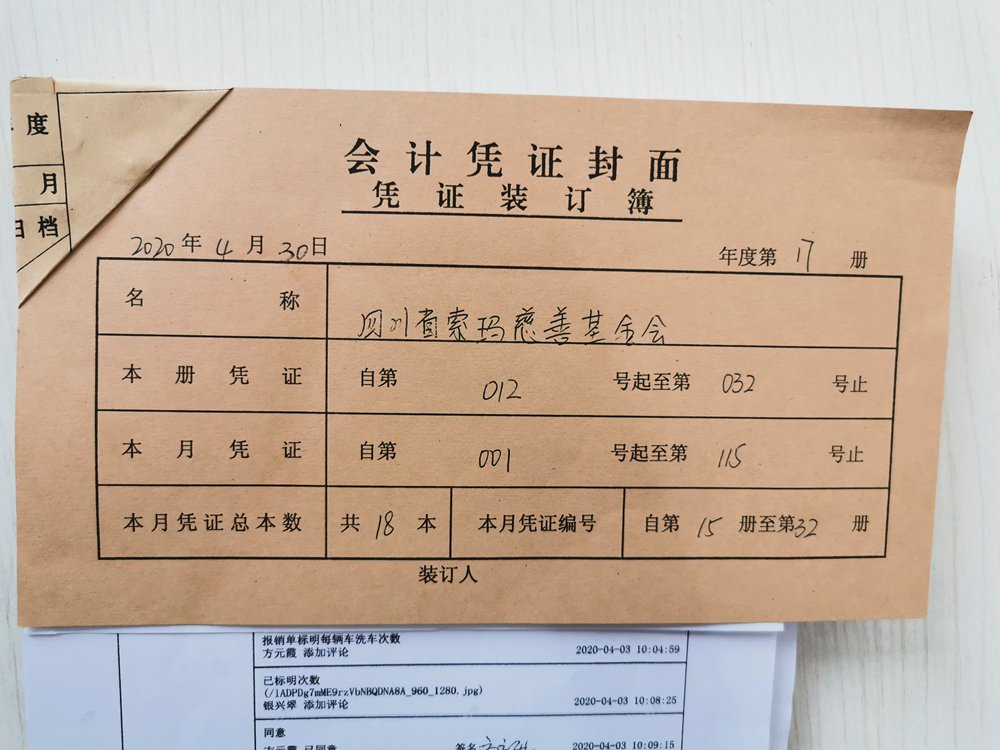 度
月
归档
会计凭证封面
凭证装订簿
2020年4月30日
年度第17册
名称 四川省索玛慈善基金会
本册凭证 自第012号起至第032号止
本月凭证 自第001号起至第115号止
本月凭证总本数 共18本 本月凭证编号 自第15册至第32册
装订人
报销单标明每辆车洗车次数
方元霞 添加评论 2020-04-03 10:04:59
已标明次数
(/iADPDg7mME9rzVbNBQDNA8A_960_1280.jpg)
银兴翠 添加评论 2020-04-03 10:08:25
同意
方元霞 已同意 签名: 2020-04-03 10:09:15